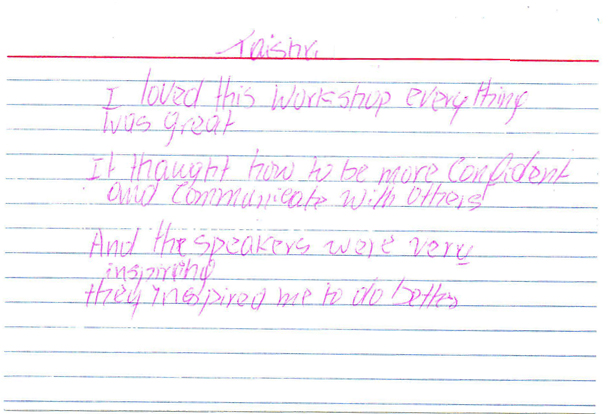 Taishri
I loved this workshop everything
was great
It thaught how to be more confident
and communicate with others
And the speakers were very
inspiring
they inspired me to do better